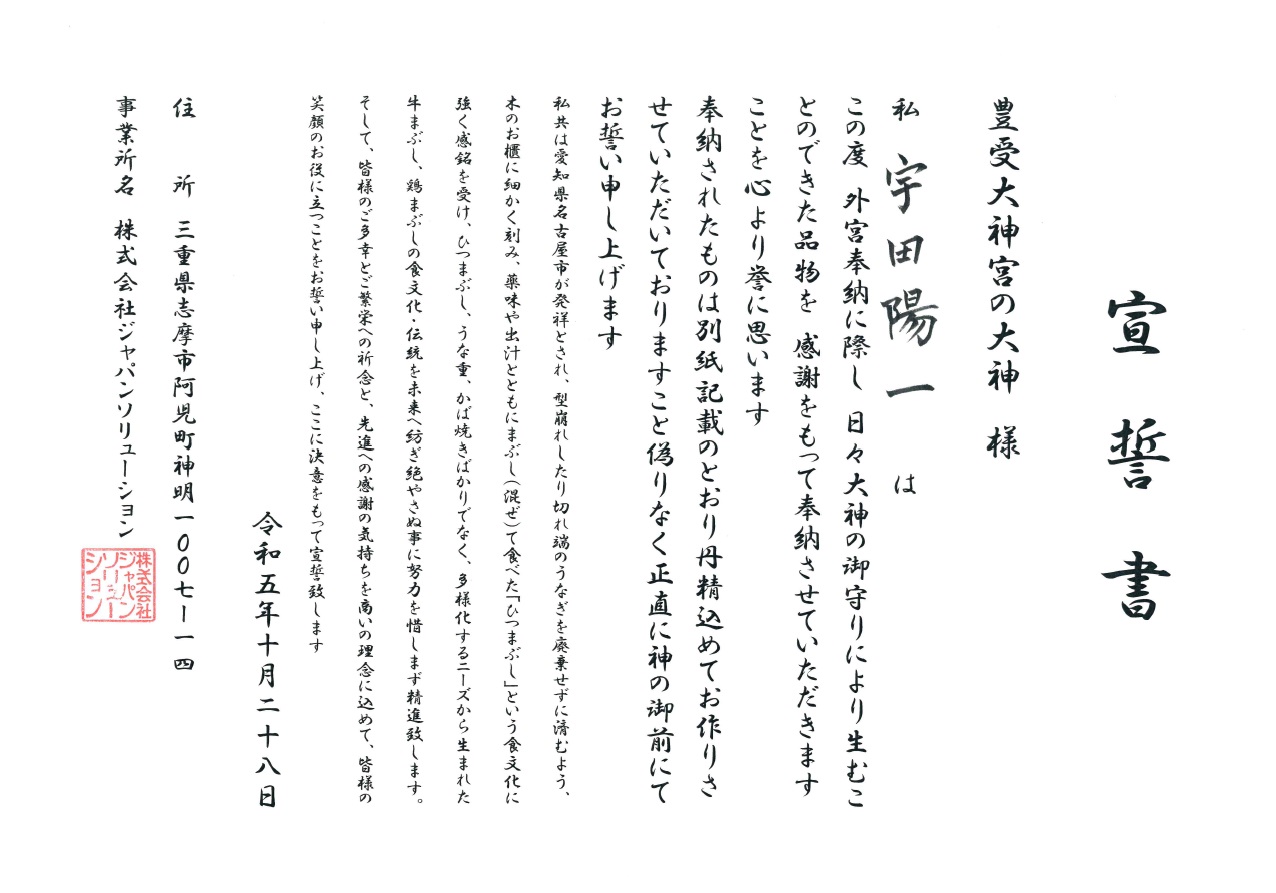 宣誓書
豊受大神宮の大神 様
私 宇田陽一 は
この度 外宮奉納に際し 日々大神の御守りにより生むこ
とのできた品物を 感謝をもって奉納させていただきます
ことを心より誉に思います
奉納されたものは別紙記載のとおり丹精込めてお作りさ
せていただいておりますこと偽りなく正直に神の御前にて
お誓い申し上げます
私共は愛知県名古屋市が発祥とされ、型崩れしたり切れ端のうなぎを廃棄せずに済むよう、
木のお櫃に細かく刻み、薬味や出汁とともにまぶし(混ぜ)て食べた「ひつまぶし」という食文化に
強く感銘を受け、ひつまぶし、うな重、かば焼きばかりでなく、多様化するニーズから生まれた
牛まぶし、鶏まぶしの食文化・伝統を未来へ紡ぎ絶やさぬ事に努力を惜しまず精進致します。
そして、皆様のご多幸とご繁栄への祈念と、先進への感謝の気持ちを商いの理念に込めて、皆様の
笑顔のお役に立つことをお誓い申し上げ、ここに決意をもって宣誓致します
令和五年十月二十八日
住 所 三重県志摩市阿児町神明一〇〇七ー一四
事業所名 株式会社ジャパンソリューション
株式会社
ジャパン
ソリュー
ション